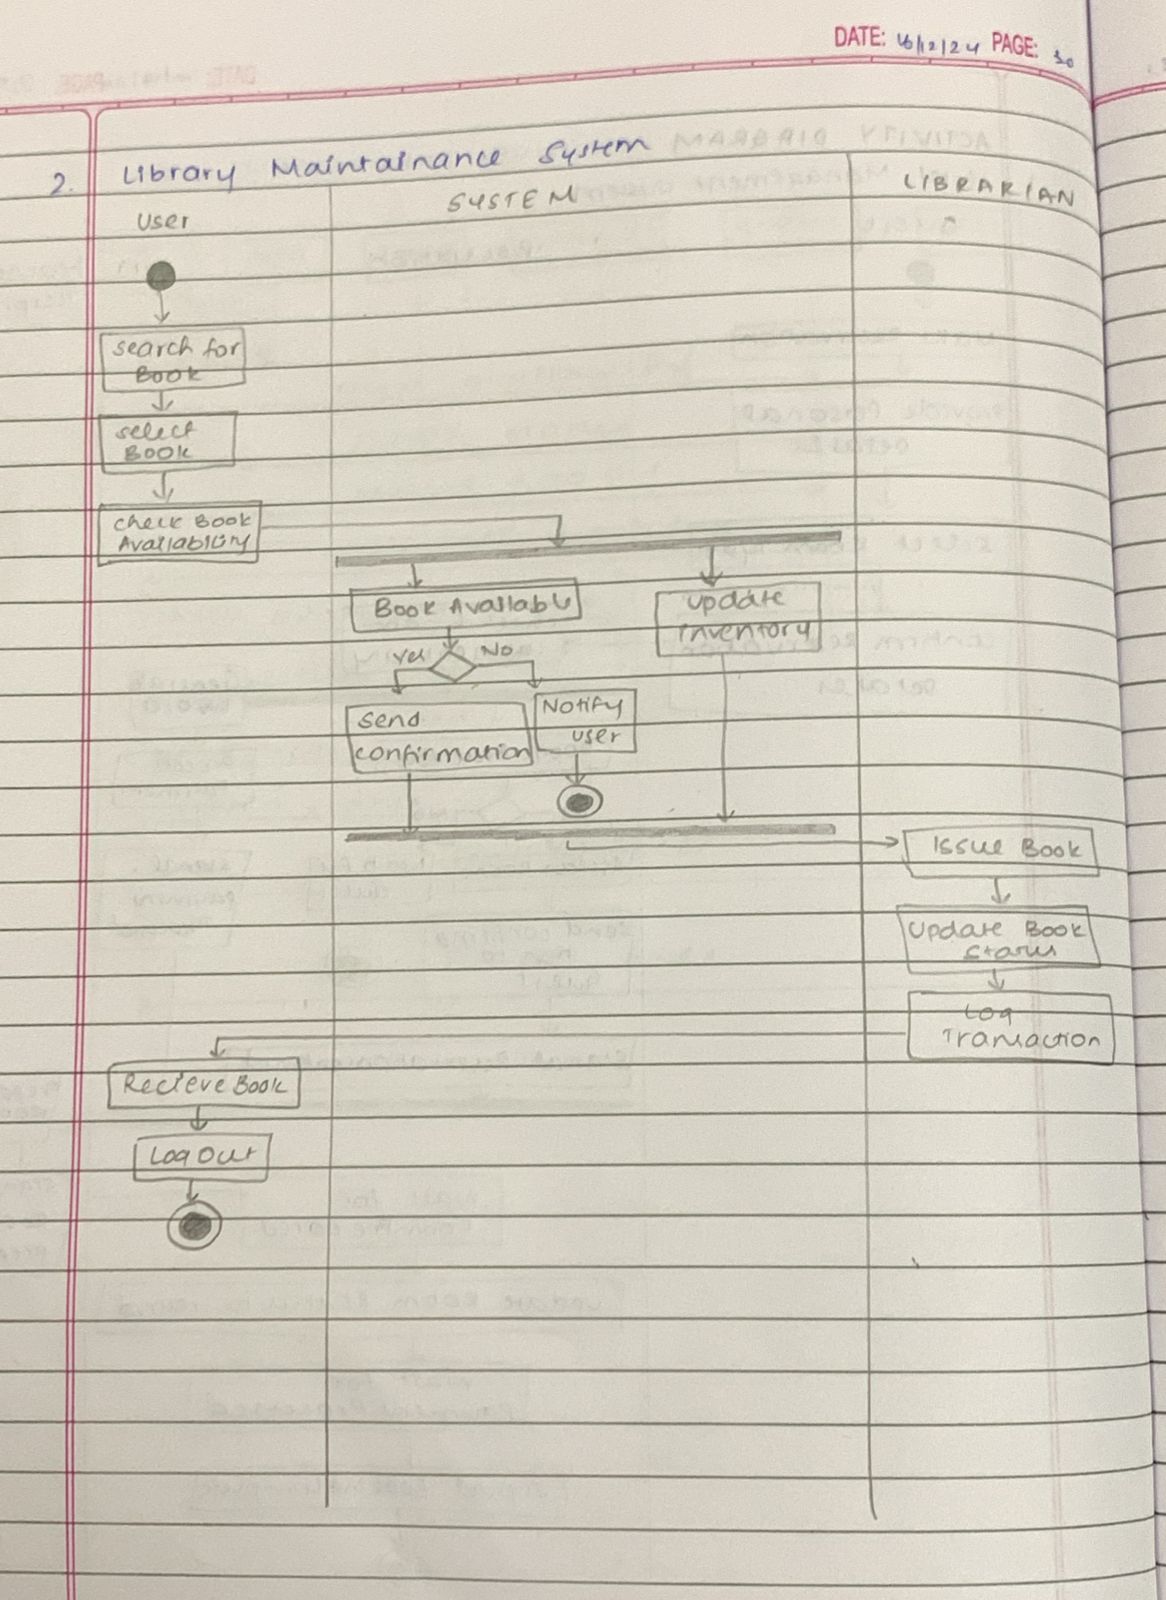 DATE: 16/12/24 PAGE: 30
2. Library Maintainance System
User
SYSTEM
LIBRARIAN
search for
Book
select
Book
Check Book
Availability
Book Available
Update
inventory
Yes
No
Send
confirmation
Notify
user
Issue Book
Update Book
Status
Log
Transaction
Recieve Book
Log Out